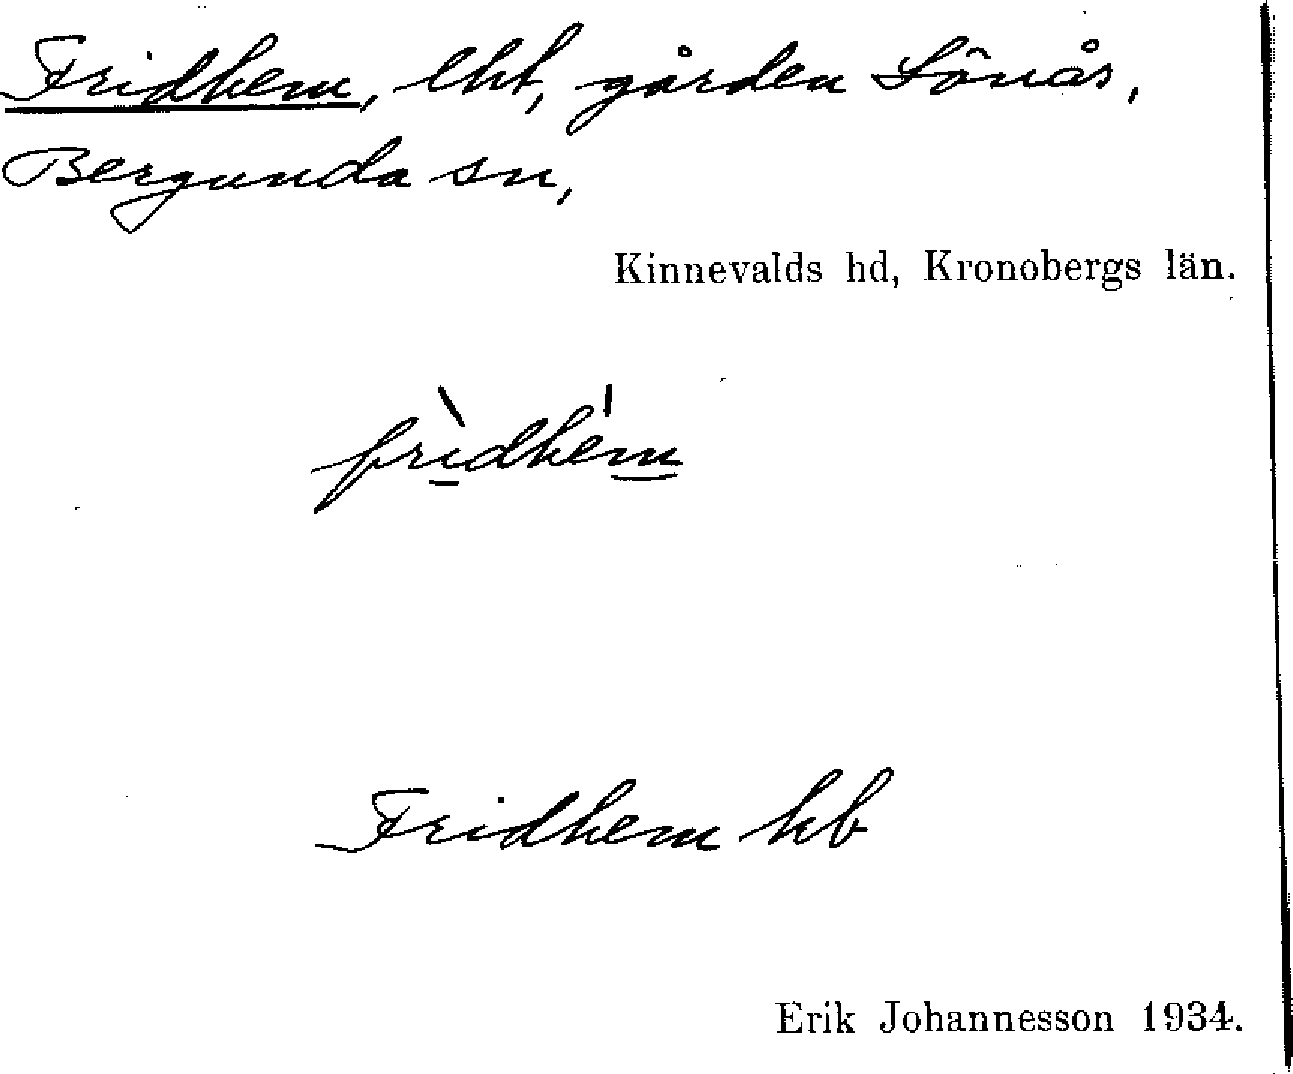 Fridhem, lht, gården Sönås,
Bergunda sn,
Kinnevalds hd, Kronobergs län.
fridhem
Fridhem hb
Erik Johannesson 1934.